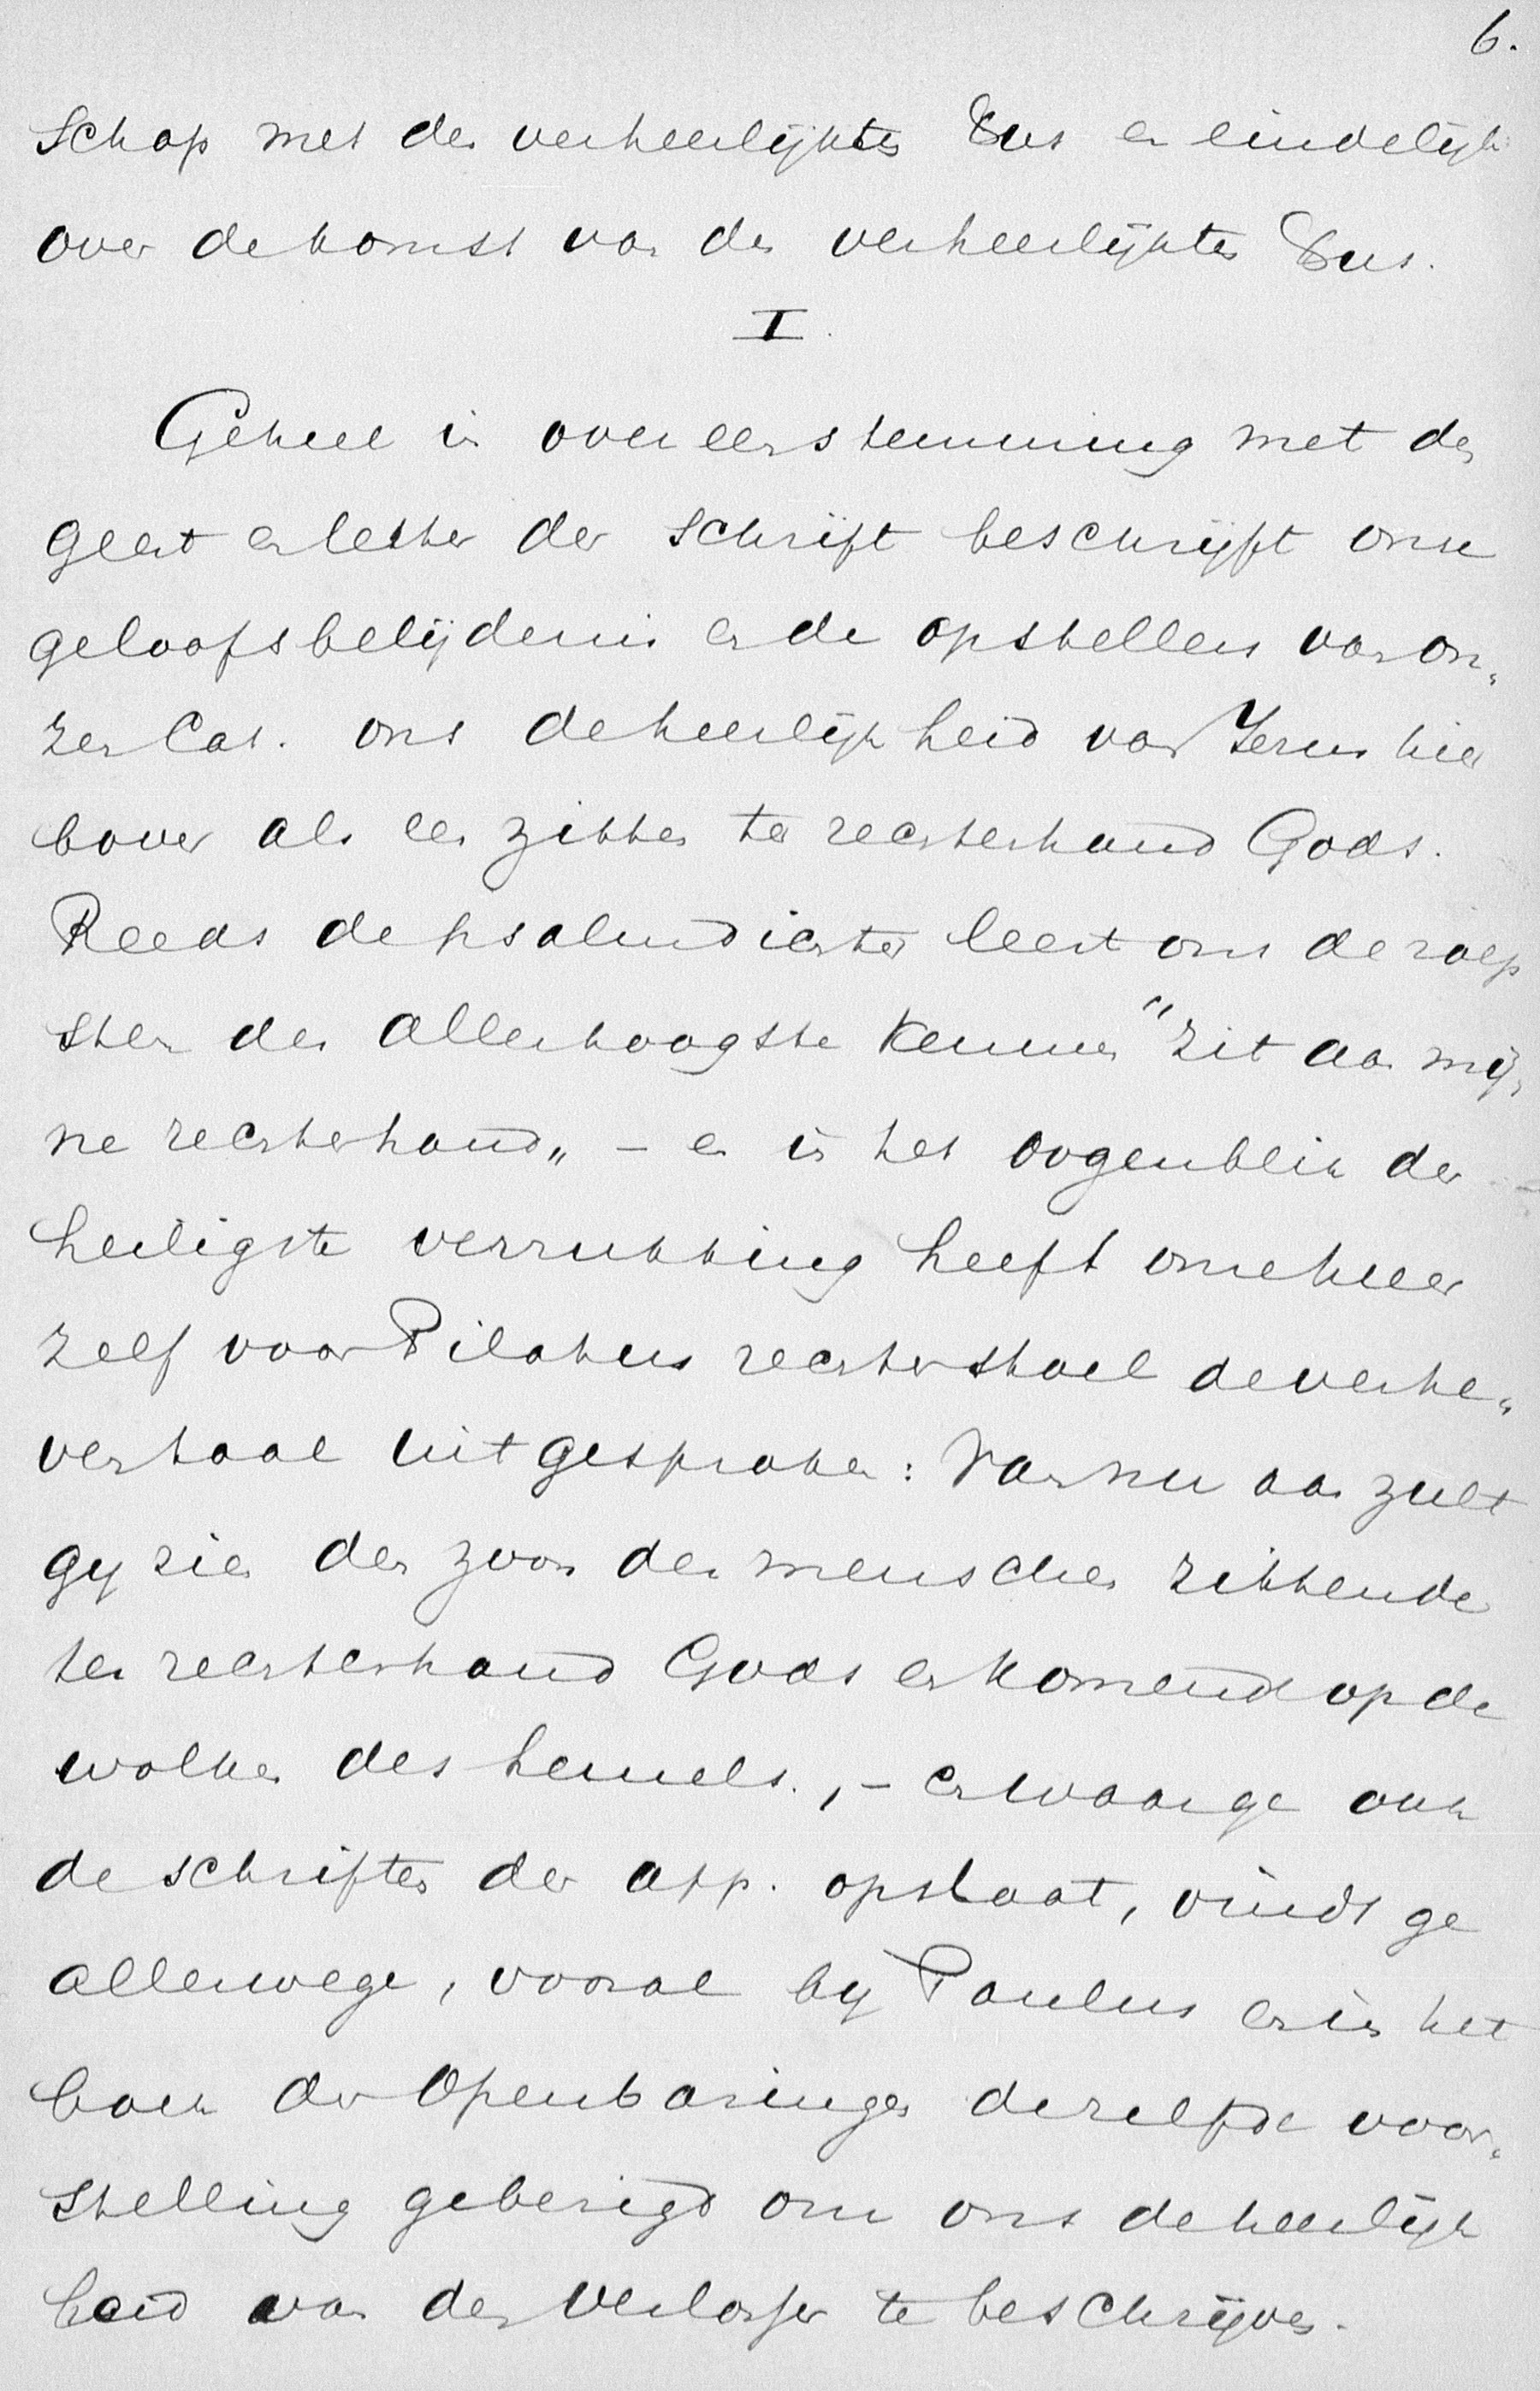 6.
schap met den verheerlijkten Xus en eindelijk
over de komst van den verheerlijkten Xus.
I.
Geheel in overeenstemming met den
geest en letter der schrift beschrijft onze
geloofsbelijdenis en de opstellers van on„
zen Cat. ons de heerlijkheid van Jezus hier
boven als een zitten ter rechterhand Gods.
Reeds de psalmdichter leert ons de roep
stem des Allerhoogste kennen "zit aan mij„
ne rechterhand„ – en in het oogenblik der
heiligste verrukking heeft onze heer
zelf voor Pilatus rechterstoel de verhe„
ven taal uitgesproken: Van nu aan zult
gy zien den zoon des menschen zittende
ter rechterhand Gods en komend op de
wolken des hemels., – en waar ge ook
de schriften der app. opslaat, vindt ge
allerwege, vooral by Paulus en in het
boek der Openbaringen dezelfde voor„
stelling gebezigd om ons de heerlijk
heid van den Verlosser te beschrijven.